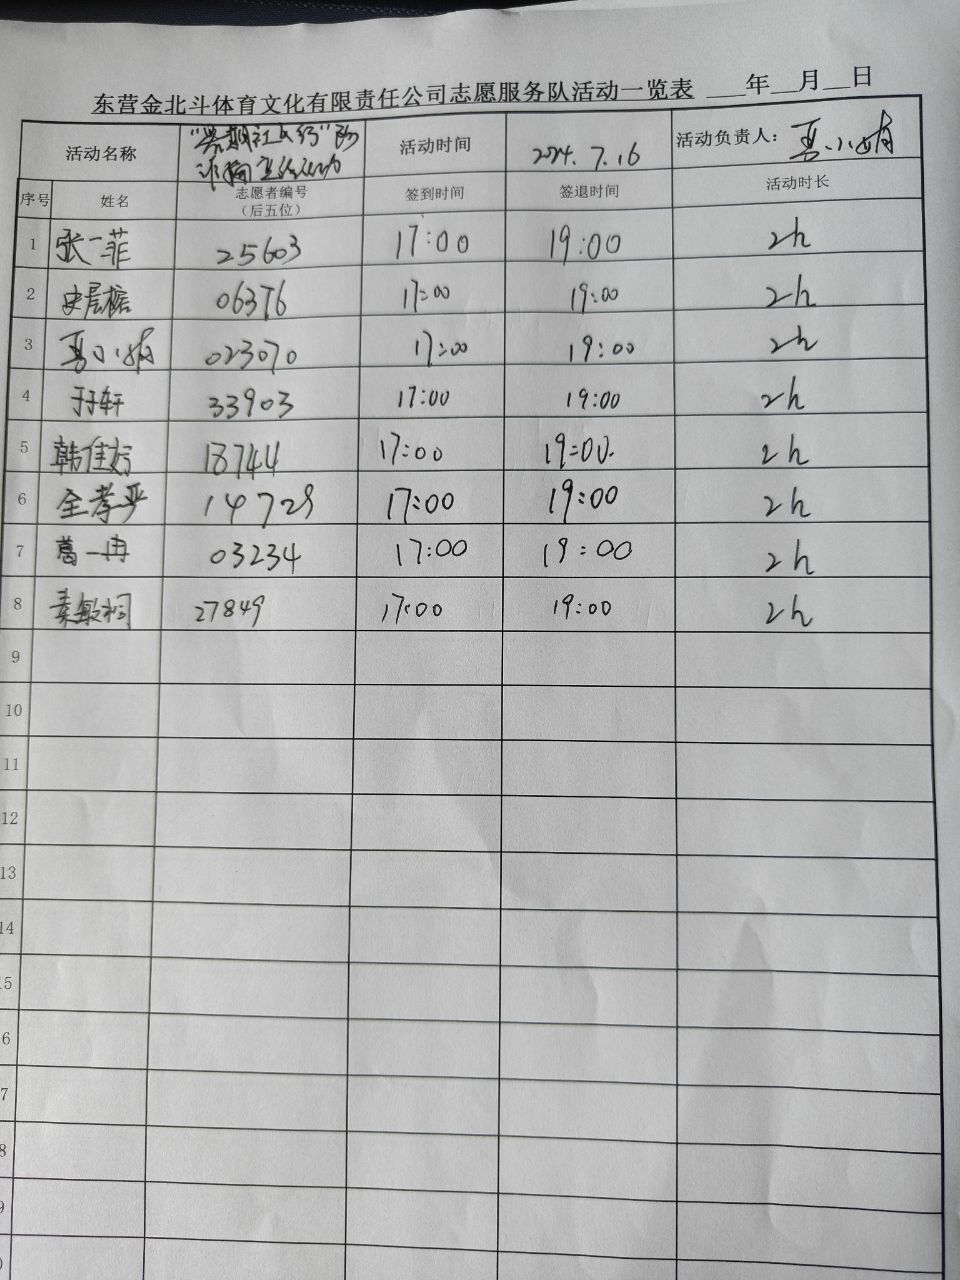 东营金北斗体育文化有限责任公司志愿服务队活动一览表 ___年__月__日
活动名称 活动时间 2024.7.16 活动负责人：
序号 姓名 志愿者编号（后五位） 签到时间 签退时间 活动时长
1 张一菲 25603 17:00 19:00 2h
2 06376 17:00 19:00 2h
3 023070 17:00 19:00 2h
4 于子轩 33903 17:00 19:00 2h
5 韩佳妤 18744 17:00 19:00 2h
6 全孝严 14729 17:00 19:00 2h
7 葛一冉 03234 17:00 19:00 2h
8 27849 17:00 19:00 2h
9
10
11
12
13
14